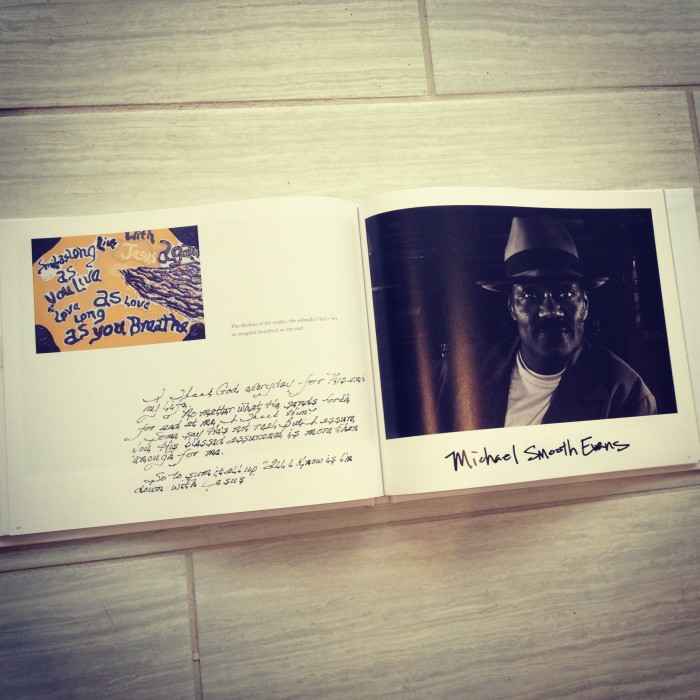 Live With
Long
Jesus again
as
You Live
Love as Love
Long
as you Breathe
The rhythm of the the solitude I feel
an irregular heartbeat in my soul.
I thank God, everyday for
my life.
No matter what He sends forth
for and at me, I thank Him
Some say He's not real, But I assure
you His blessed assurance is more than
enough for me.
So to sum it all up "All I know is I'm
down with Jesus
Michael Smooth Evans